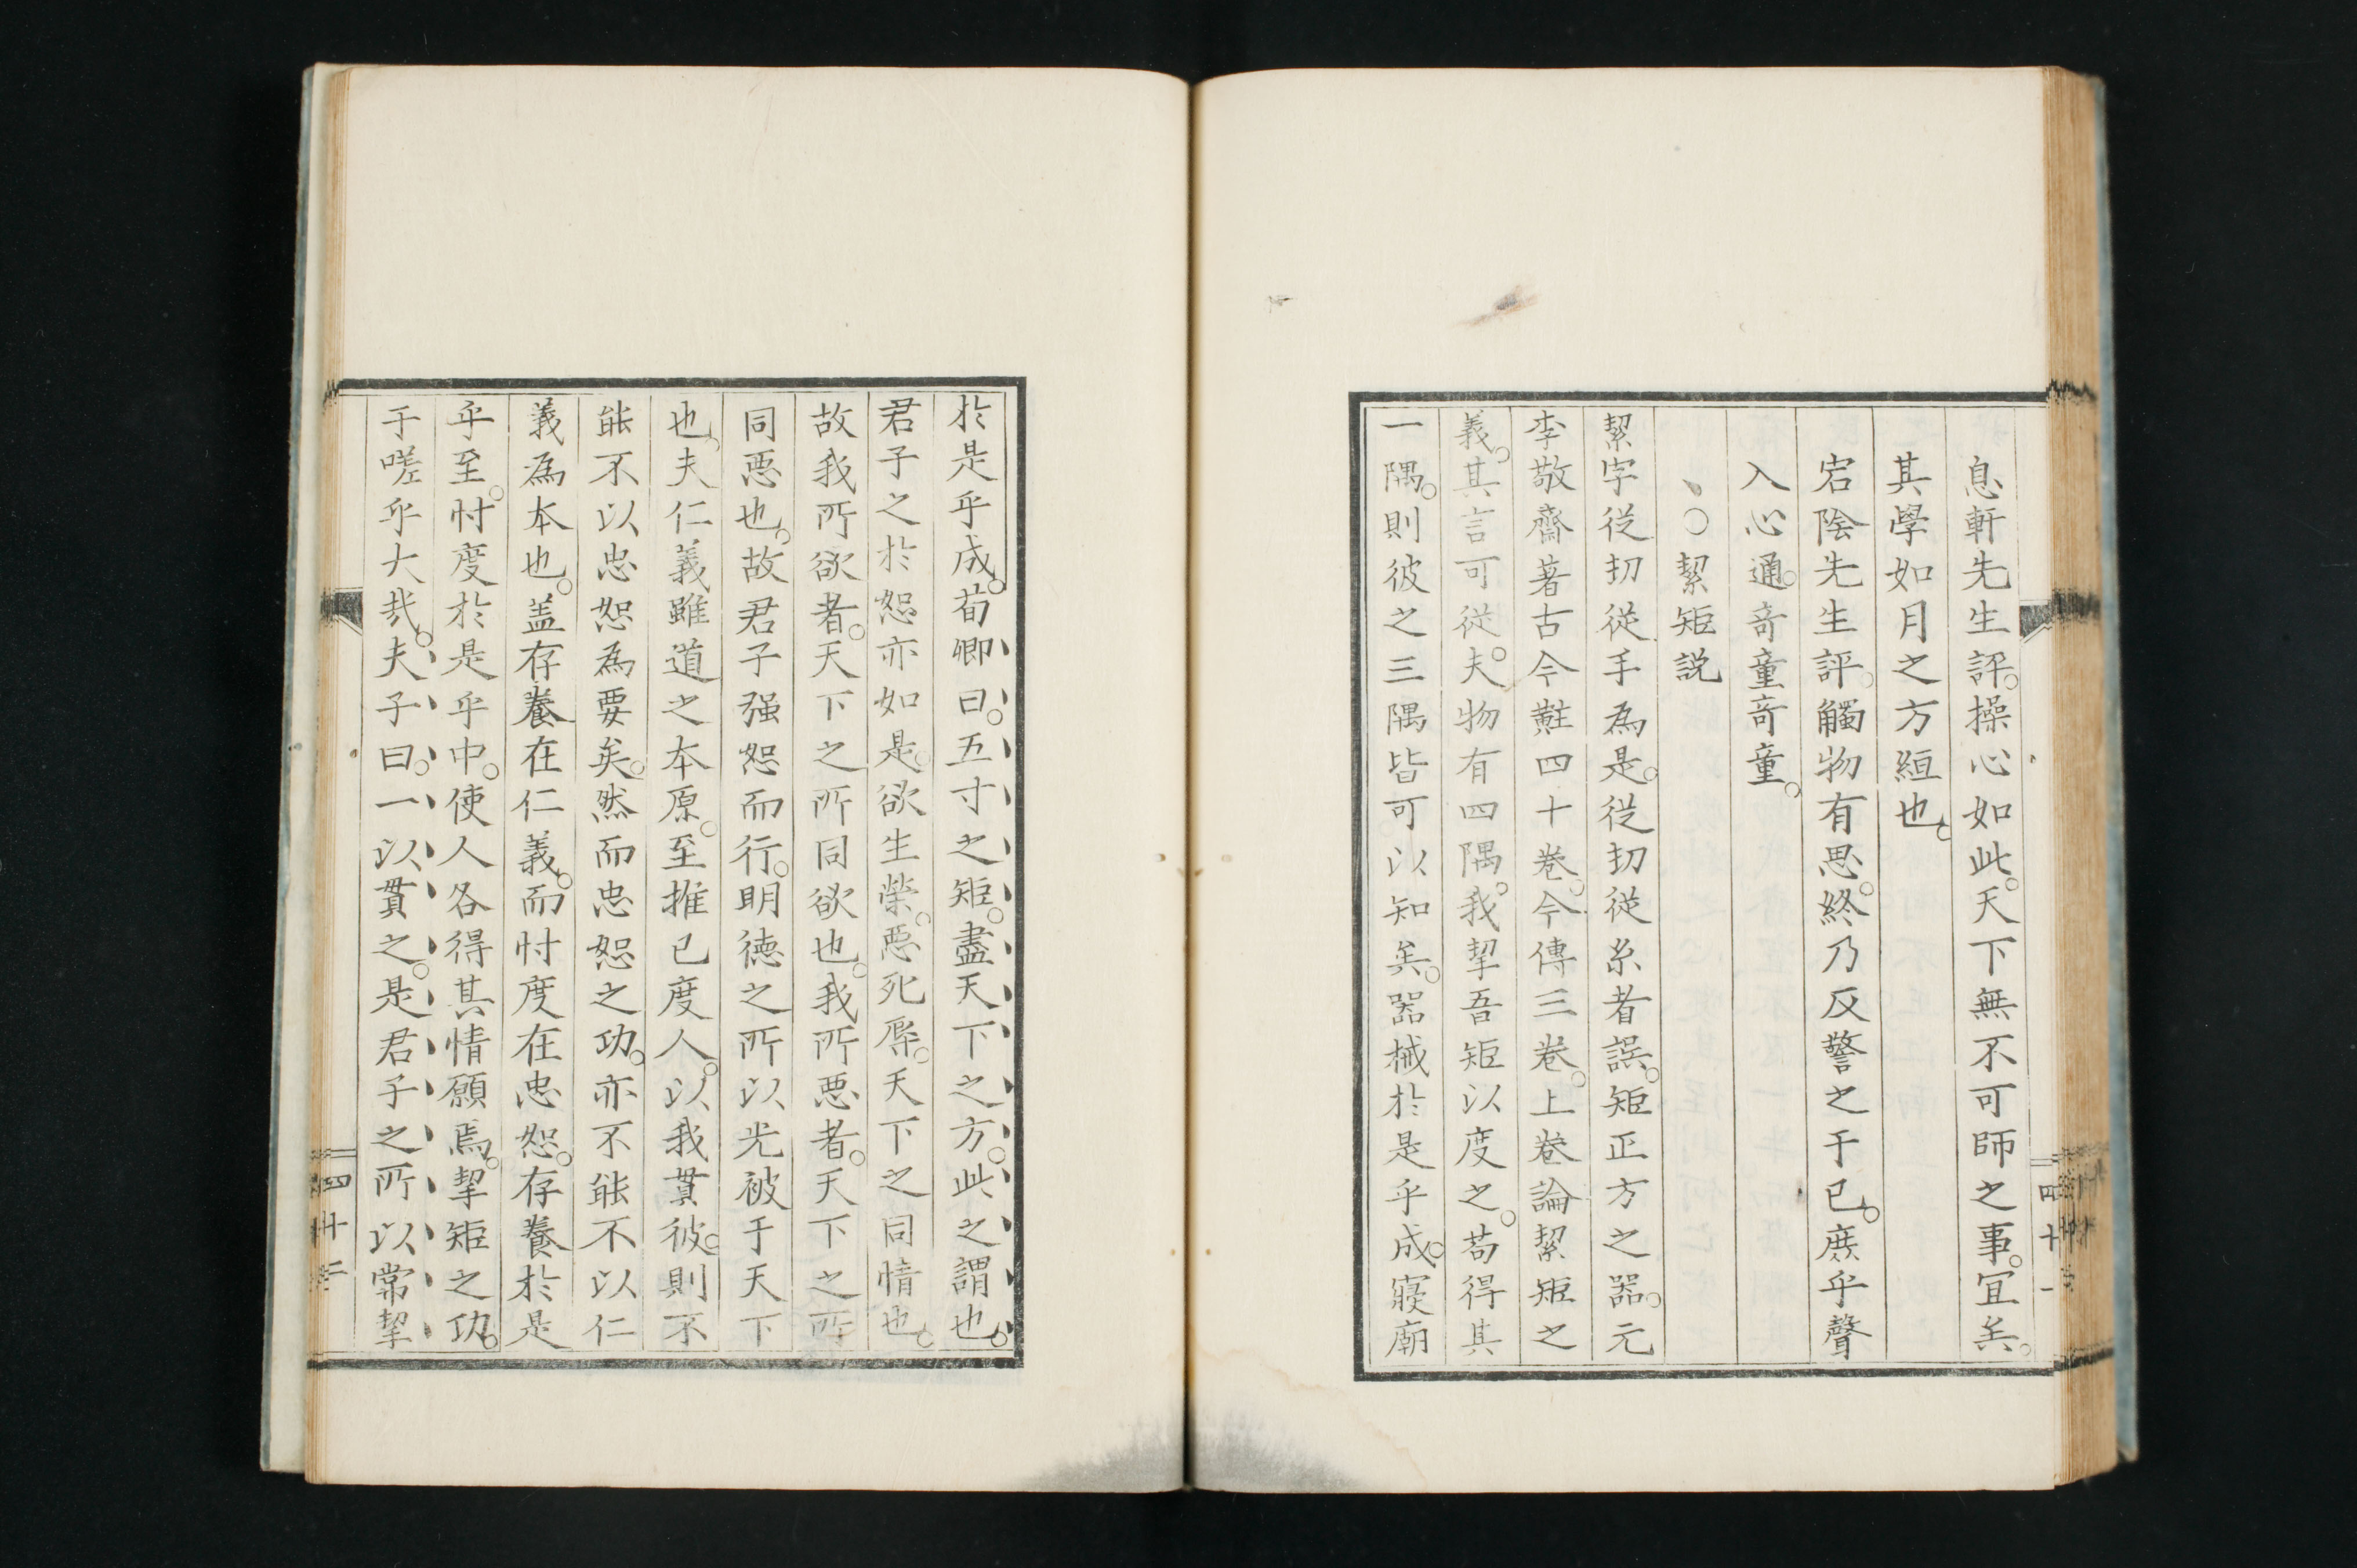 息軒先生評。操心如此。天下無不可師之事。宜矣。
其學如月之方絙也。
宕陰先生評。觸物有思。終乃反警之于已。庶乎聲
入心通。竒童竒童。
、○絜矩説
絜字從㓞從手為是。從㓞從糸者誤。矩正方之器。元
李敬齋著古今黈四十卷。今傳三卷。上卷論絜矩之
義。其言可從。夫物有四隅。我挈吾矩以度之。苟得其
一隅。則彼之三隅皆可以知矣。器械於是乎成。寢廟
四十一
於是乎成。荀卿曰。五寸之矩。盡天下之方。此之謂也。
君子之於恕亦如是。欲生榮。惡死辱。天下之同情也。
故我所欲者。天下之所同欲也。我所惡者。天下之所
同惡也。故君子强恕而行。明德之所以光被于天下
也。夫仁義雖道之本原。至推己度人。以我貫彼。則不
能不以忠恕為要矣。然而忠恕之功。亦不能不以仁
義為本也。盖存養在仁義。而忖度在忠恕。存養於是
乎至。忖度於是乎中。使人各得其情願焉。挈矩之功。
于嗟乎大哉。夫子曰。一以貫之。是君子之所以常挈
四十二